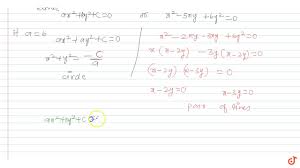 ax²+by²+C=0 or x²-5xy+6y²=0
if a=b ax²+ay²+C=0
x²+y²= -C/a
circle
x²-2xy-3xy+6y²=0
x(x-2y) -3y(x-2y)=0
(x-2y)(x-3y)=0
x-2y=0 x-3y=0
pair of lines
ax²+by²+C